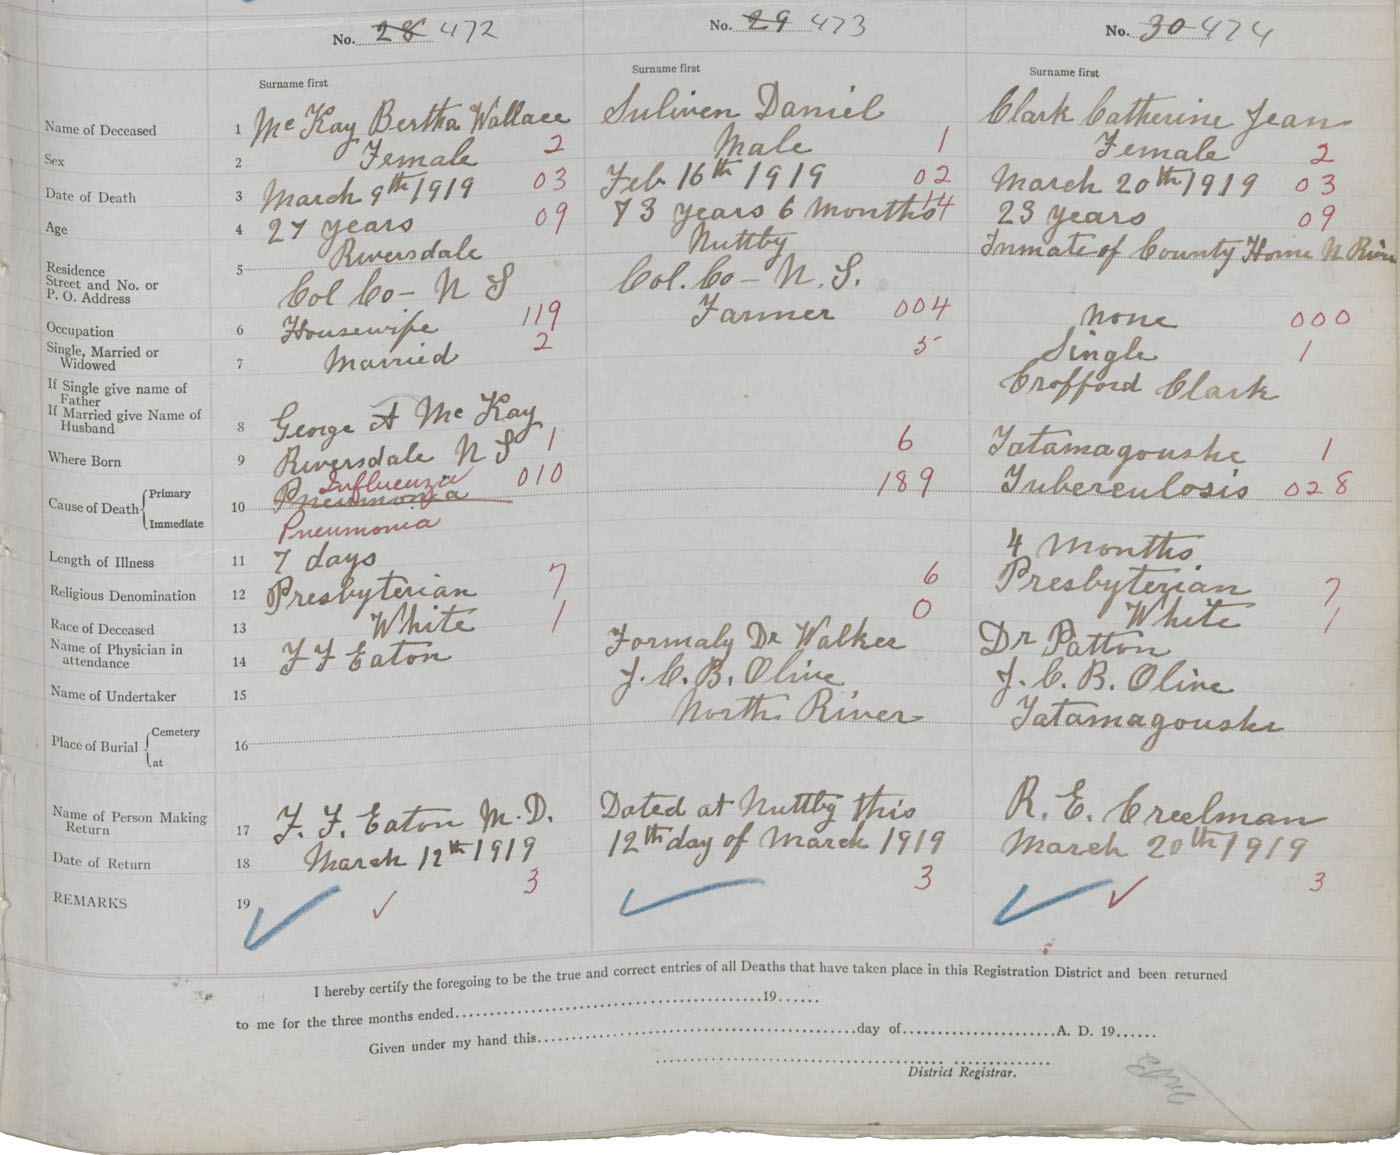 No. 28 472
No. 29 473
No. 30 474
Surname first
Surname first
Surname first
Name of Deceased 1 Mc Kay Bertha Wallace
Suliven Daniel
Clark Catherine Jean
Sex 2 Female 2
Male 1
Female 2
Date of Death 3 March 9th 1919 03
Feb 16th 1919 02
March 20th 1919 03
Age 4 27 years 09
73 years 6 months 14
23 years 09
Residence
Street and No. or
P. O. Address
5 Riversdale
Col Co - N S
Nuttby
Col. Co - N. S.
Inmate of County Home N River
Occupation 6 Housewife 119
Farmer 004
none 000
Single, Married or
Widowed
7 Married 2
5
Single 1
If Single give name of
Father
If Married give Name of
Husband
8 George A Mc Kay
Crofford Clark
Where Born 9 Riversdale N S 1
6
Tatamagouske 1
Cause of Death Primary
Immediate
10 Pneumonia Influenza 010
Pneumonia
189
Tuberculosis 028
Length of Illness 11 7 days
4 months
Religious Denomination 12 Presbyterian 7
6
Presbyterian 7
Race of Deceased 13 White 1
0
White 1
Name of Physician in
attendance
14 F F Eaton
Formaly Dr Walker
Dr Patton
Name of Undertaker 15
J. C. B. Olive
J. C. B. Olive
Place of Burial Cemetery
at
16
North River
Tatamagouske
Name of Person Making
Return
17 F. F. Eaton M. D.
Dated at Nuttby this
R. E. Creelman
Date of Return 18 March 12th 1919
12th day of March 1919
March 20th 1919
REMARKS 19
3
3
3
I hereby certify the foregoing to be the true and correct entries of all Deaths that have taken place in this Registration District and been returned
to me for the three months ended 19
Given under my hand this day of A. D. 19
District Registrar.